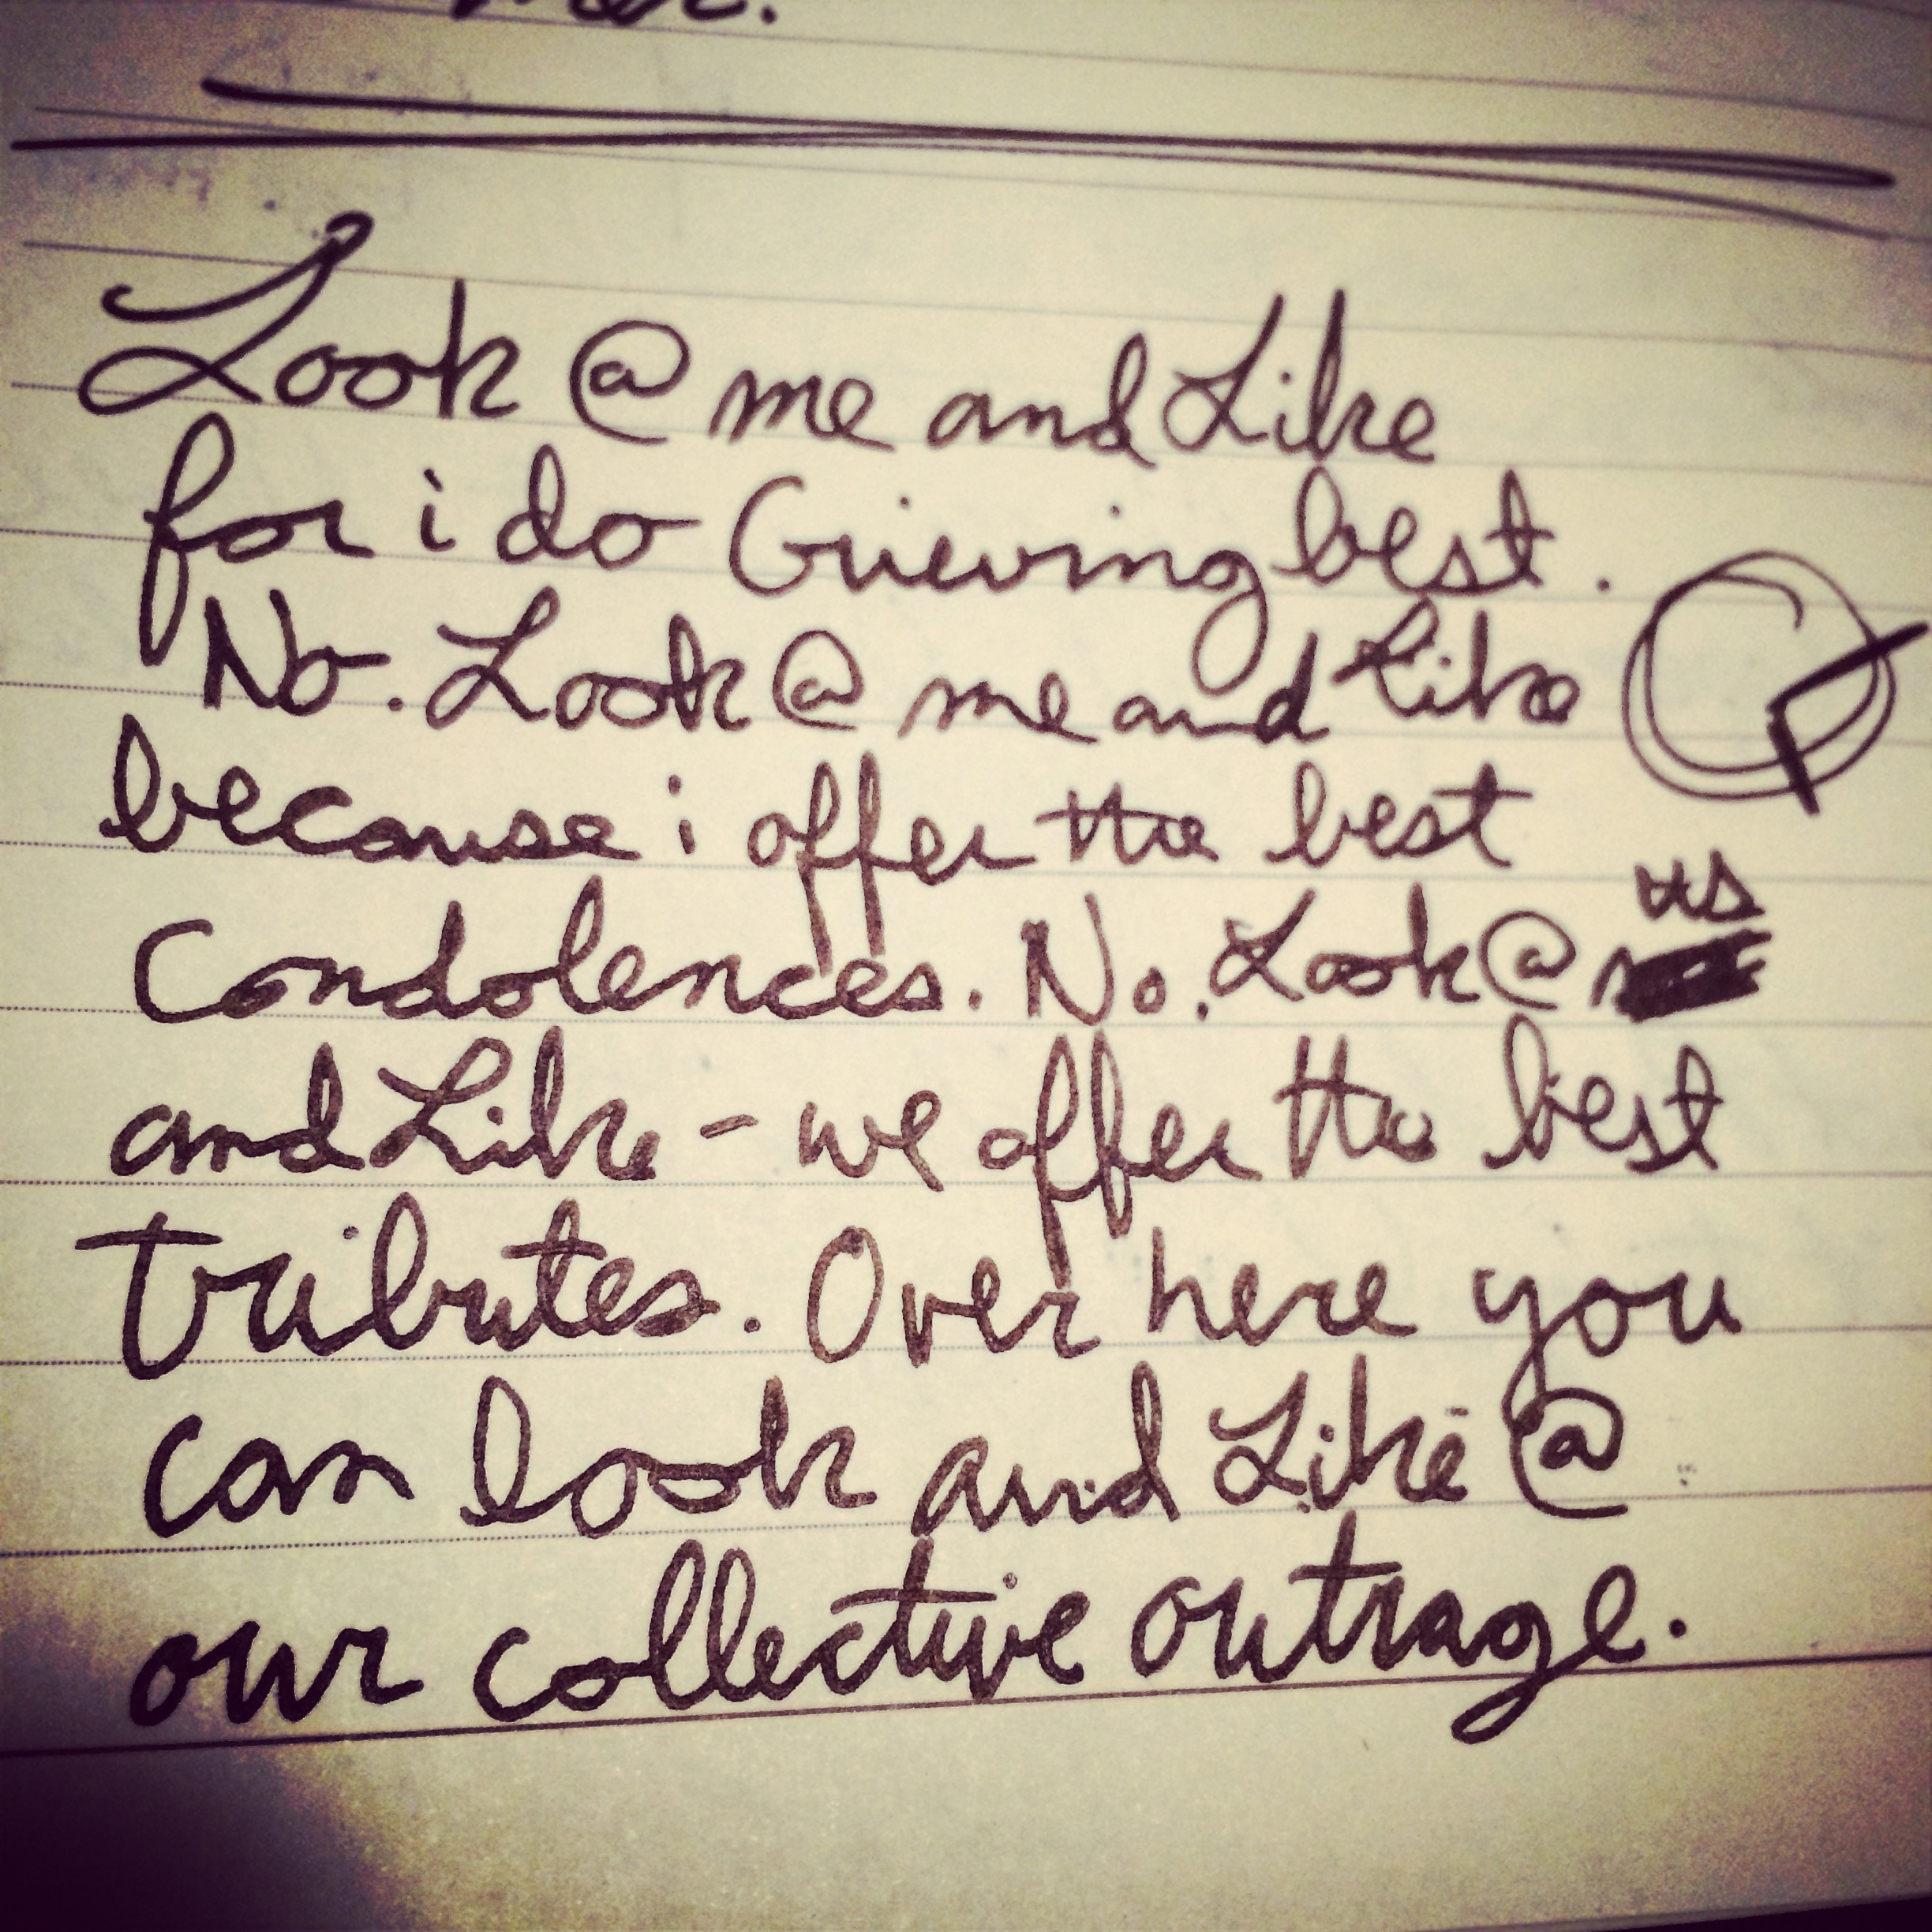 Look @ me and Like
for i do Grieving best.
No. Look @ me and Like
because i offer the best
Condolences. No. Look @ us
and Like - we offer the best
tributes. Over here you
can look and Like @
our collective outrage.